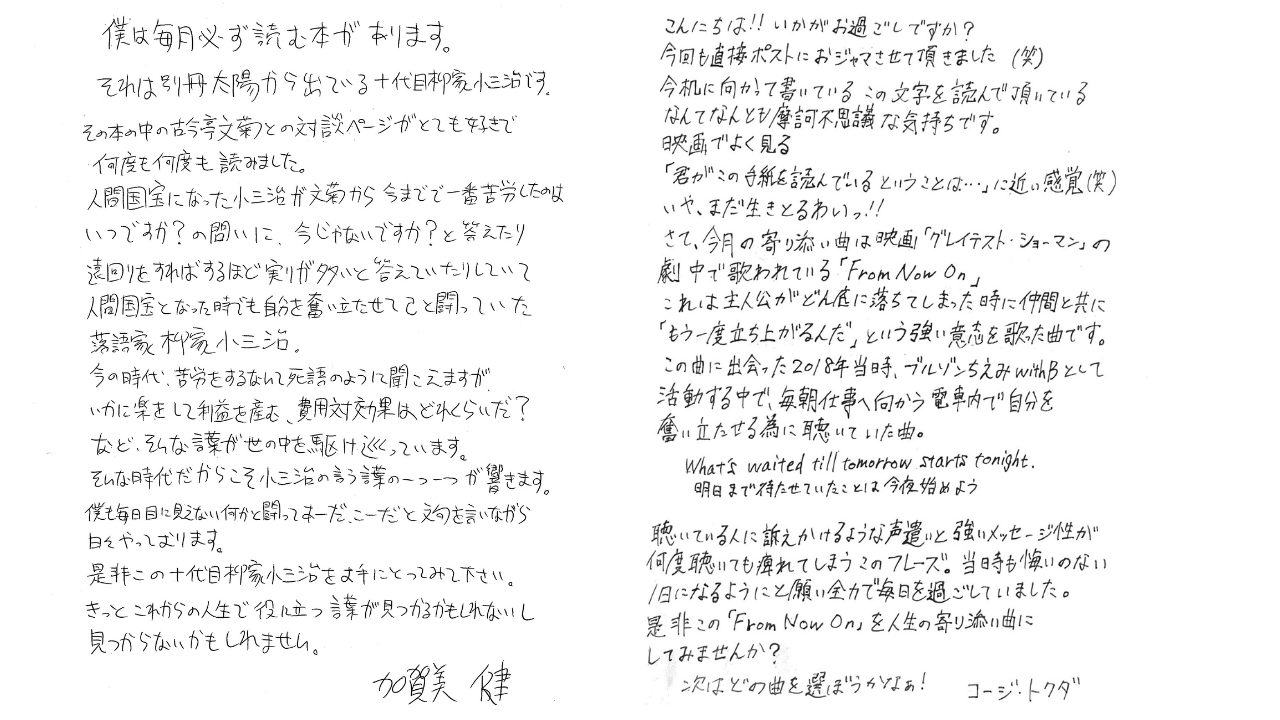 僕は毎月必ず読む本があります。
それは別冊太陽から出ている十代目柳家小三治です。
その本の中の古今亭文菊との対談ページがとても好きで
何度も何度も読みました。
人間国宝になった小三治が文菊から今までで一番苦労したのは
いつですか?の問いに、今じゃないですか?と答えたり
遠回りをすればするほど実りが多いと答えていたりしていて
人間国宝となった時でも自分を奮い立たせて己と闘っていた
落語家柳家小三治。
今の時代、苦労をするなんて死語のように聞こえますが
いかに楽をして利益を産む、費用対効果は、どれくらいだ?
など、そんな言葉が世の中を駆け巡っています。
そんな時代だからこそ小三治の言う言葉の一つ一つが響きます。
僕も毎日目に見えない何かと闘ってあーだ、こーだと文句を言いながら
日々やっております。
是非この十代目柳家小三治をお手にとってみて下さい。
きっとこれからの人生で役に立つ言葉が見つかるかもしれないし
見つからないかもしれません。
加賀美 健
こんにちは!! いかがお過ごしですか?
今回も直接ポストにおジャマさせて頂きました (笑)
今机に向かって書いている この文字を読んで頂いている
なんてなんとも摩訶不思議な気持ちです。
映画でよく見る
「君がこの手紙を読んでいるということは…」に近い感覚(笑)
いや、まだ生きとるわいっ!!
さて、今月の寄り添い曲は映画「グレイテスト・ショーマン」の
劇中で歌われている「From Now On」
これは主人公がどん底に落ちてしまった時に仲間と共に
「もう一度立ち上がるんだ」という強い意志を歌った曲です。
この曲に出会った2018年当時、ブルゾンちえみwithBとして
活動する中で、毎朝仕事へ向かう電車内で自分を
奮い立たせる為に聴いていた曲。
What's waited till tomorrow starts tonight.
明日まで待たせていたことは今夜始めよう
聴いている人に訴えかけるような声遣いと強いメッセージ性が
何度聴いても痺れてしまうこのフレーズ。当時も悔いのない
1日になるようにと願い全力で毎日を過ごしていました。
是非この「From Now On」を人生の寄り添い曲に
してみませんか?
次はどの曲を選ぼうかなぁ!
コージ・トクダ